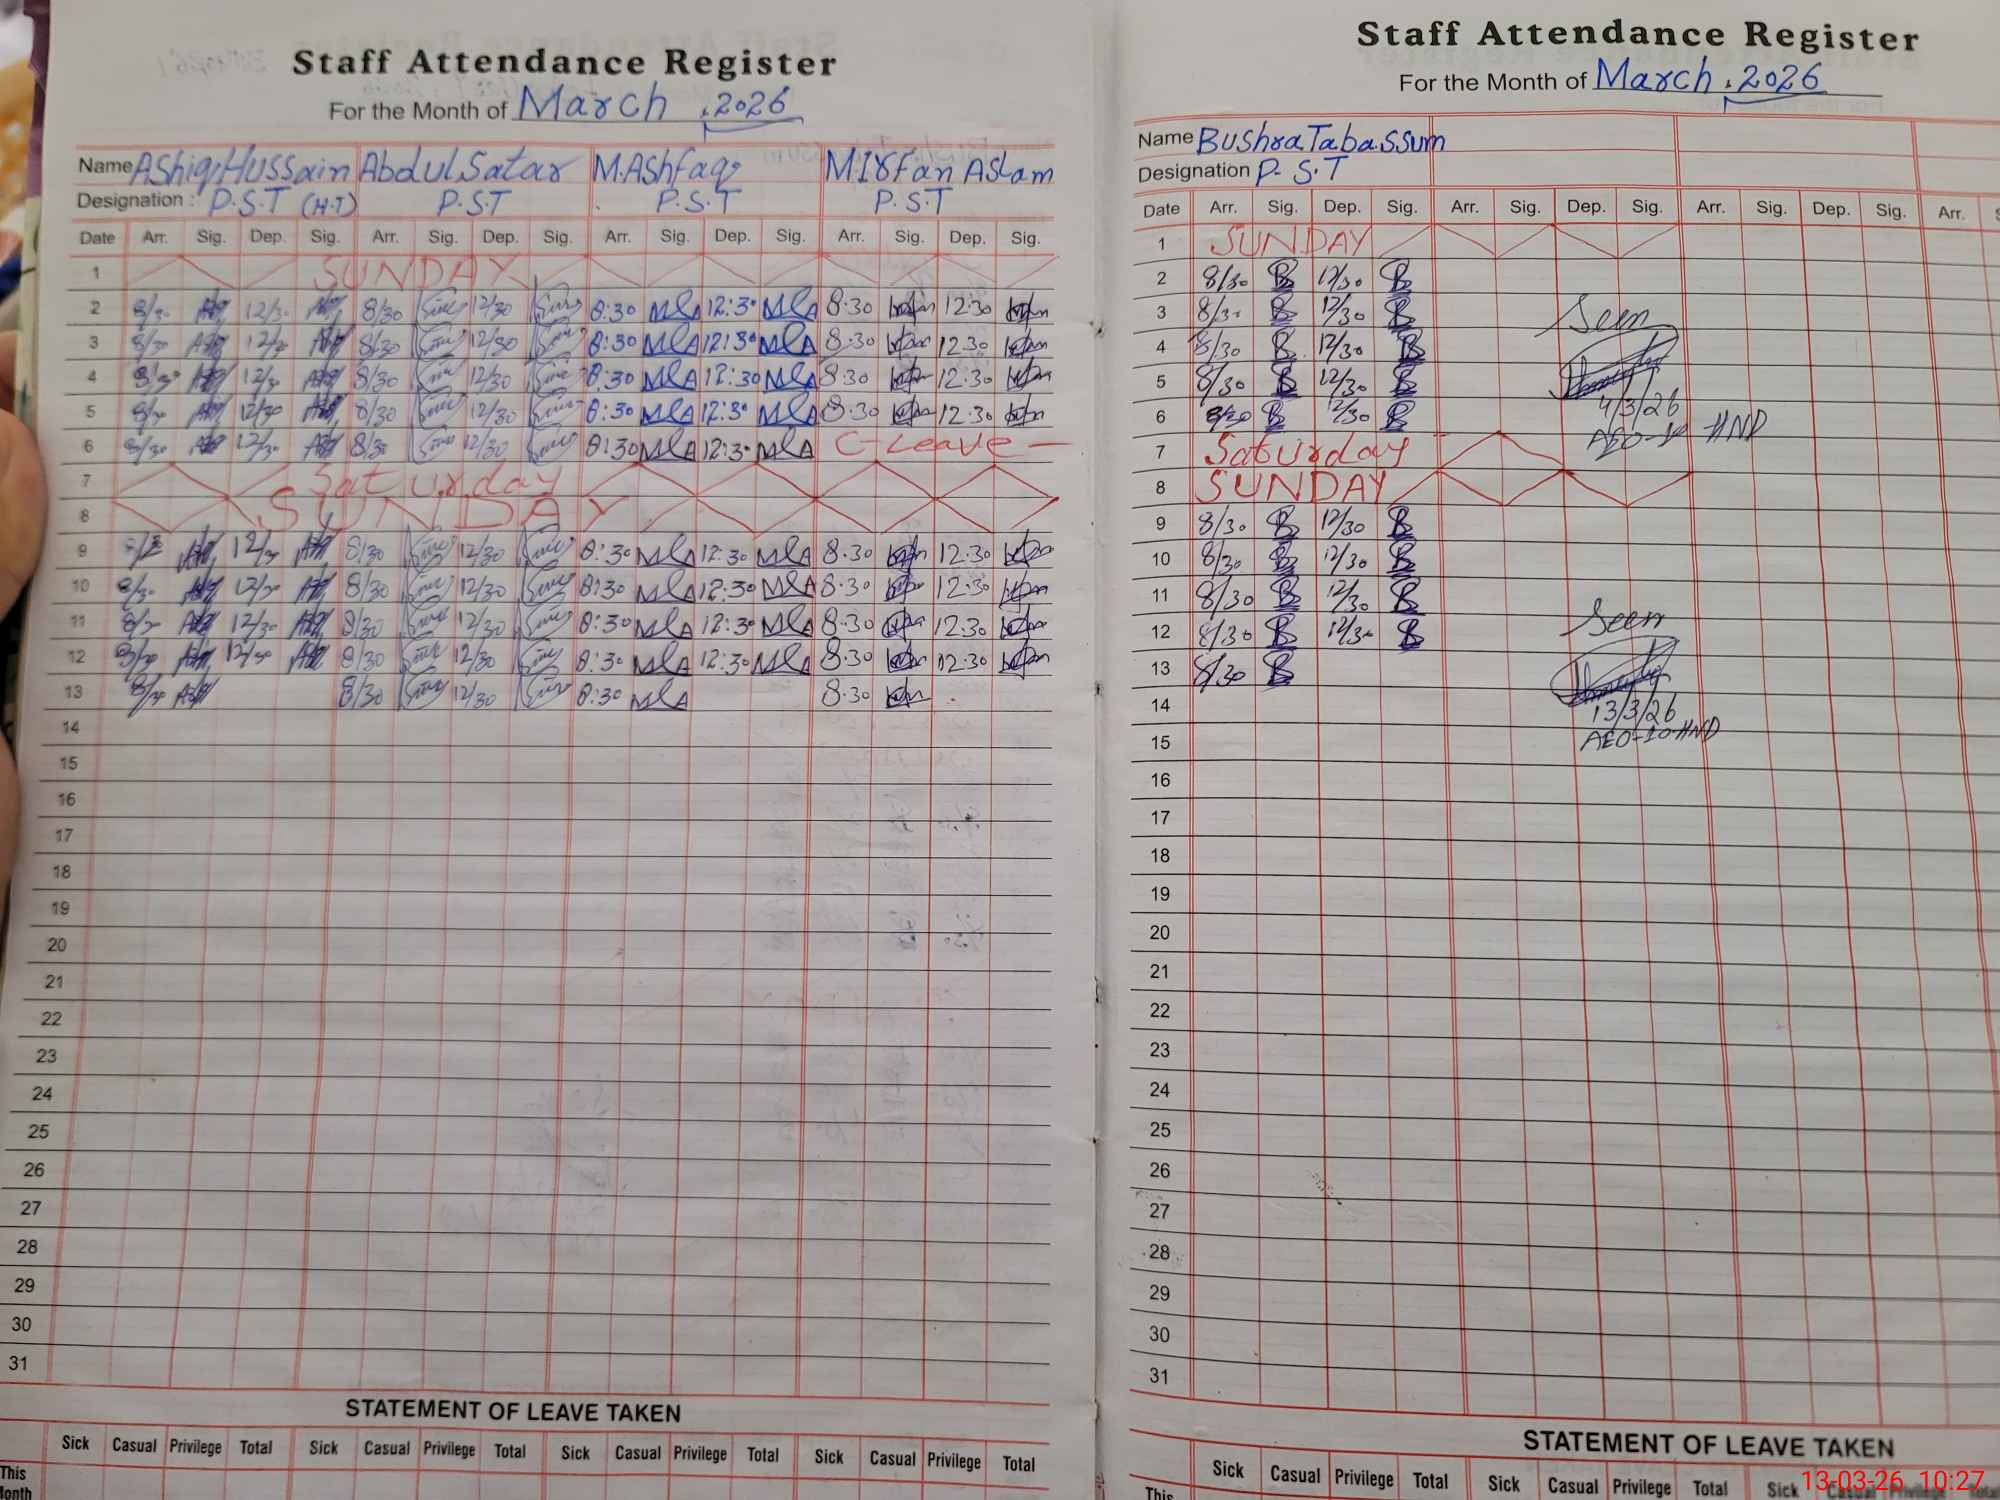 Staff Attendance Register
For the Month of March, 2026
Name Ashiq Hussain Abdul Satar M.Ashfaq M.Irfan Aslam
Designation : P.S.T (H.T) P.S.T P.S.T P.S.T
Date Arr. Sig. Dep. Sig. Arr. Sig. Dep. Sig. Arr. Sig. Dep. Sig. Arr. Sig. Dep. Sig.
1 SUNDAY
2 8/30 12/30 8/30 12/30 8:30 12:30 8.30 12.30
3 8/30 12/30 8/30 12/30 8:30 12:30 8.30 12.30
4 8/30 12/30 8/30 12/30 8:30 12:30 8.30 12.30
5 8/30 12/30 8/30 12/30 8:30 12:30 8.30 12.30
6 8/30 12/30 8/30 12/30 8:30 12:30 C-Leave-
7 Saturday
8 SUNDAY
9 12/30 8/30 12/30 8:30 12:30 8.30 12.30
10 8/30 12/30 8/30 12/30 8:30 12:30 8.30 12.30
11 8/30 12/30 8/30 12/30 8:30 12:30 8.30 12.30
12 8/30 12/30 8/30 12/30 8:30 12:30 8.30 12.30
13 8/30 8/30 12/30 8:30 8.30
14
15
16
17
18
19
20
21
22
23
24
25
26
27
28
29
30
31
STATEMENT OF LEAVE TAKEN
Sick Casual Privilege Total Sick Casual Privilege Total Sick Casual Privilege Total Sick Casual Privilege Total
This
Month
Staff Attendance Register
For the Month of March, 2026
Name Bushra Tabassum
Designation P.S.T
Date Arr. Sig. Dep. Sig. Arr. Sig. Dep. Sig. Arr. Sig. Dep. Sig. Arr.
1 SUNDAY
2 8/30 B 12/30 B
3 8/30 B 12/30 B
Seen
4 8/30 B 12/30 B
5 8/30 B 12/30 B
4/3/26
6 8/30 B 12/30 B
AEO-10-HND
7 Saturday
8 SUNDAY
9 8/30 B 12/30 B
10 8/30 B 12/30 B
11 8/30 B 12/30 B
12 8/30 B 12/30 B
Seen
13 8/30 B
14
13/3/26
15
AEO-10-HND
16
17
18
19
20
21
22
23
24
25
26
27
28
29
30
31
STATEMENT OF LEAVE TAKEN
Sick Casual Privilege Total Sick Casual Privilege Total Sick Casual Privilege
This
13-03-26 10:27